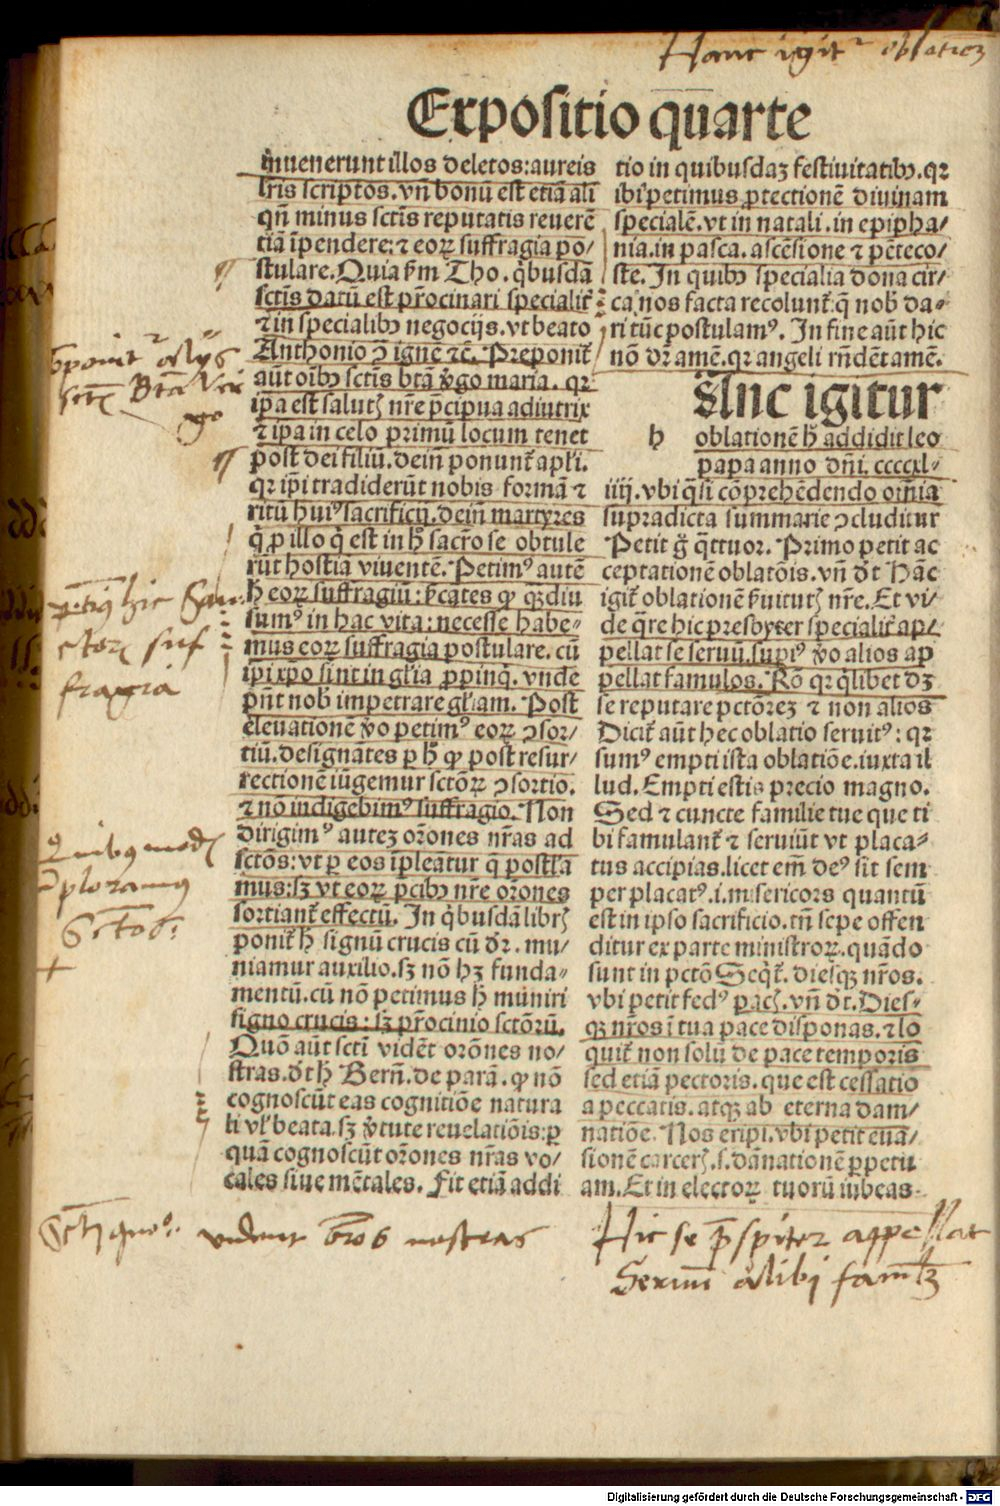 Hanc igitr oblatioēz
Expositio quarte
īuenerunt illos deletos: aureis
lr̄is scriptos. vn̄ bonū est etiā ali
qn̄ minus sctīs reputatis reuerē
tiā īpendere: ⁊ eoꝝ suffragia po/
stulare. Quia ẜm Tho. q̇busdā
sctīs datū est pr̄ocinari specialit̄
⁊ in specialibꝰ negocijs. vt beato
Anthonio ↄ̄ ignē ⁊c̄. Preponit̄
aūt oībꝰ sctīs btā v̇go maria. qꝛ
ip̄a est salutꝭ nr̄e p̄cipua adiutrix
⁊ ip̄a in celo primū locum tenet
post dei filiū. dein̄ ponunt̄ apl̄i.
qꝛ ip̄i tradiderūt nobis formā ⁊
ritū huiꝰ sacrificij. dein̄ martyres
q̇ ꝓ illo q̇ est in h̄ sacr̄o se obtule
rūt hostiā viuentē. Petimꝰ autē
h̄ eoꝝ suffragiū: p̄cātes ꝙ qꝫdiu
sumꝰ in hac vita: necesse habe-
mus eoꝝ suffragia postulare. cū
ip̄i xp̄o sint in gl̄ia ꝓpinq̇. vnde
pn̄t nob̄ impetrare gl̄iam. Post
eleuationē v̇o petimꝰ eoꝝ ↄsor/
tiū. designātes ꝑ h̄ ꝙ post resur-
rectionē iūgemur sctōꝝ ↄsortio.
⁊ nō indigebimꝰ suffragio. Non
dirigimꝰ autez or̄ones nr̄as ad
sctōs: vt ꝑ eos īpleatur q̄ postl̄a
mus: sꝫ vt eoꝝ p̄cibꝰ nr̄e or̄ones
sortiant̄ effectū. In q̇busdā librꝭ
ponit̄ h̄ signū crucis cū dr̄. mu/
niamur auxilio. sꝫ nō hꝫ funda-
mentū. cū nō petimus h̄ muniri
signo crucis: sꝫ pr̄ocinio sctōrū.
Quō aūt sctī vidēt orōnes no/
stras. dt̄ h̄ Bern̄. de parā. ꝙ nō
cognoscūt eas cognitiōe natura
li vl̓ beata. sꝫ v̇tute reuelatiōis: ꝑ
quā cognoscūt or̄ones nr̄as vo/
cales siue mētales. Fit etiā addi
tio in quibusdaꝫ festiuitatibꝰ. qꝛ
ibi petimus ꝓtectionē diuinam
specialē. vt in natali. in epipha/
nia. in pasca. ascēsione ⁊ pēteco/
ste. In quibꝰ specialia dona cir/
ca nos facta recolunt̄ q̄ nob̄ da-
ri tūc postulamꝰ. In fine aūt hic
nō dr̄ amē. qꝛ angeli rn̄dēt amē.
Anc igitur
h oblationē h̄ addidit leo
papa anno dn̄i. ccccxl-
iiij. vbi q̄si cōprehēdendo oīnia
supradicta summarie ↄcluditur
Petit g̊ q̄ttuor. Primo petit ac
ceptationē oblatōis. vn̄ dt̄ Hāc
igit̄ oblationē ẜuitutꝭ nr̄e. Et vi/
de q̄re hic presbyter specialit̄ ap/
pellat se seruū. supiꝰ v̇o alios ap
pellat famulos. Rō qꝛ q̇libet dꝫ
se reputare pctōreꝫ ⁊ non alios
Dicit̄ aūt hec oblatio seruitꝰ: qꝛ
sumꝰ empti ista oblatiōe. iuxta il
lud. Empti estis precio magno.
Sed ⁊ cuncte familie tue que ti
bi famulant̄ ⁊ seruiūt vt placa-
tus accipias. licet em̄ deꝰ sit sem
per placatꝰ. i. misericors quantū
est in ipso sacrificio. tn̄ sepe offen
ditur ex parte ministroꝝ. quādo
sunt in pctō Seq̇t̄. diesqꝫ nr̄os.
vbi petit fedꝰ pacꝭ. vn̄ dt̄. Dies-
qꝫ nr̄os ī tua pace disponas. ⁊ lo
quit̄ non solū de pace temporis
sed etiā pectoris. que est cessatio
a peccatis. atqꝫ ab eterna dam/
natiōe. Nos eripi. vbi petit euā/
sionē carcerꝭ. s. dānationē ꝑpetu
am. Et in electoꝝ tuorū iubeas
p̄ponit r̄ alijs
sctis Bta Vir
go
petimꝰ hic San
ctorꝝ suf
fragia
Quibus modꝭ
ploramꝰ
Sctōs
Scti quo vident or̄es nostras
Hic se p̄sbiter appellat
Seruum alibi famulꝫ
Digitalisierung gefördert durch die Deutsche Forschungsgemeinschaft - DFG